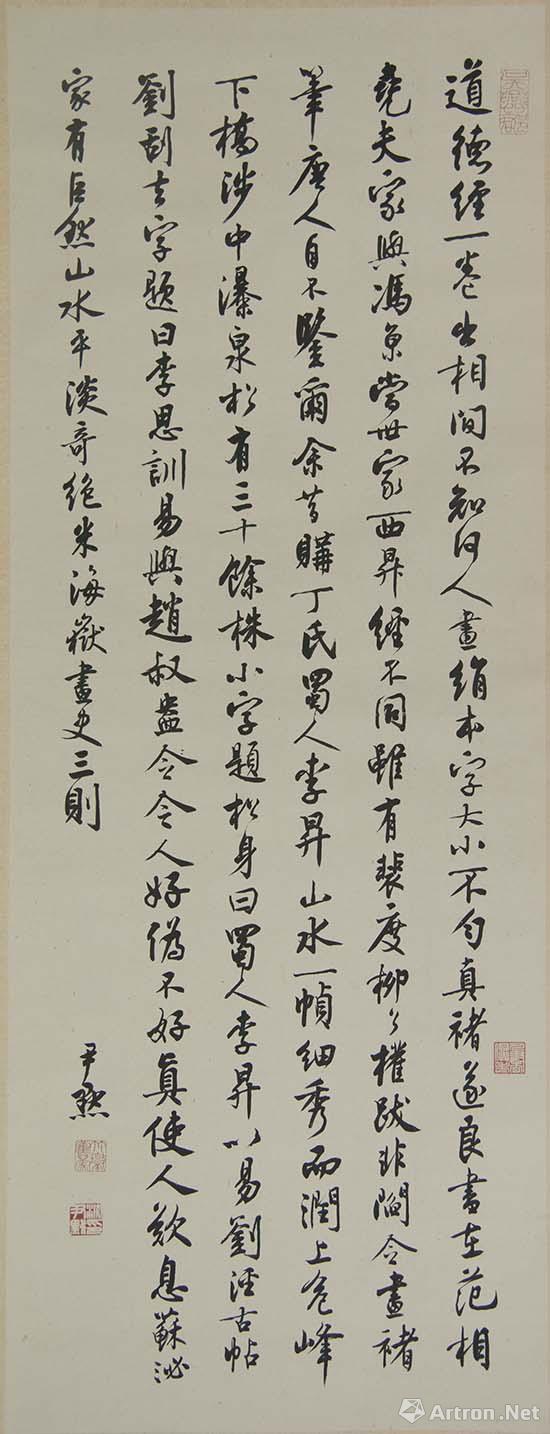 道德經一卷出相間不知何人畫絹本字大小不勻真褚遂良書在范相
堯夫家與馮京當世家西昇經不同雖有裴度柳公權跋非閻令畫褚
筆唐人自不鑒爾余昔購丁氏蜀人李昇山水一幀細秀而潤上危峰
下橋涉中瀑泉松有三十餘株小字題松身曰蜀人李昇以易劉涇古帖
劉刮去字題曰李思訓易與趙叔盎今令人好偽不好真使人歎息蘇泌
家有巨然山水平淡奇絕米海嶽畫史三則
尹默
Artron.Net